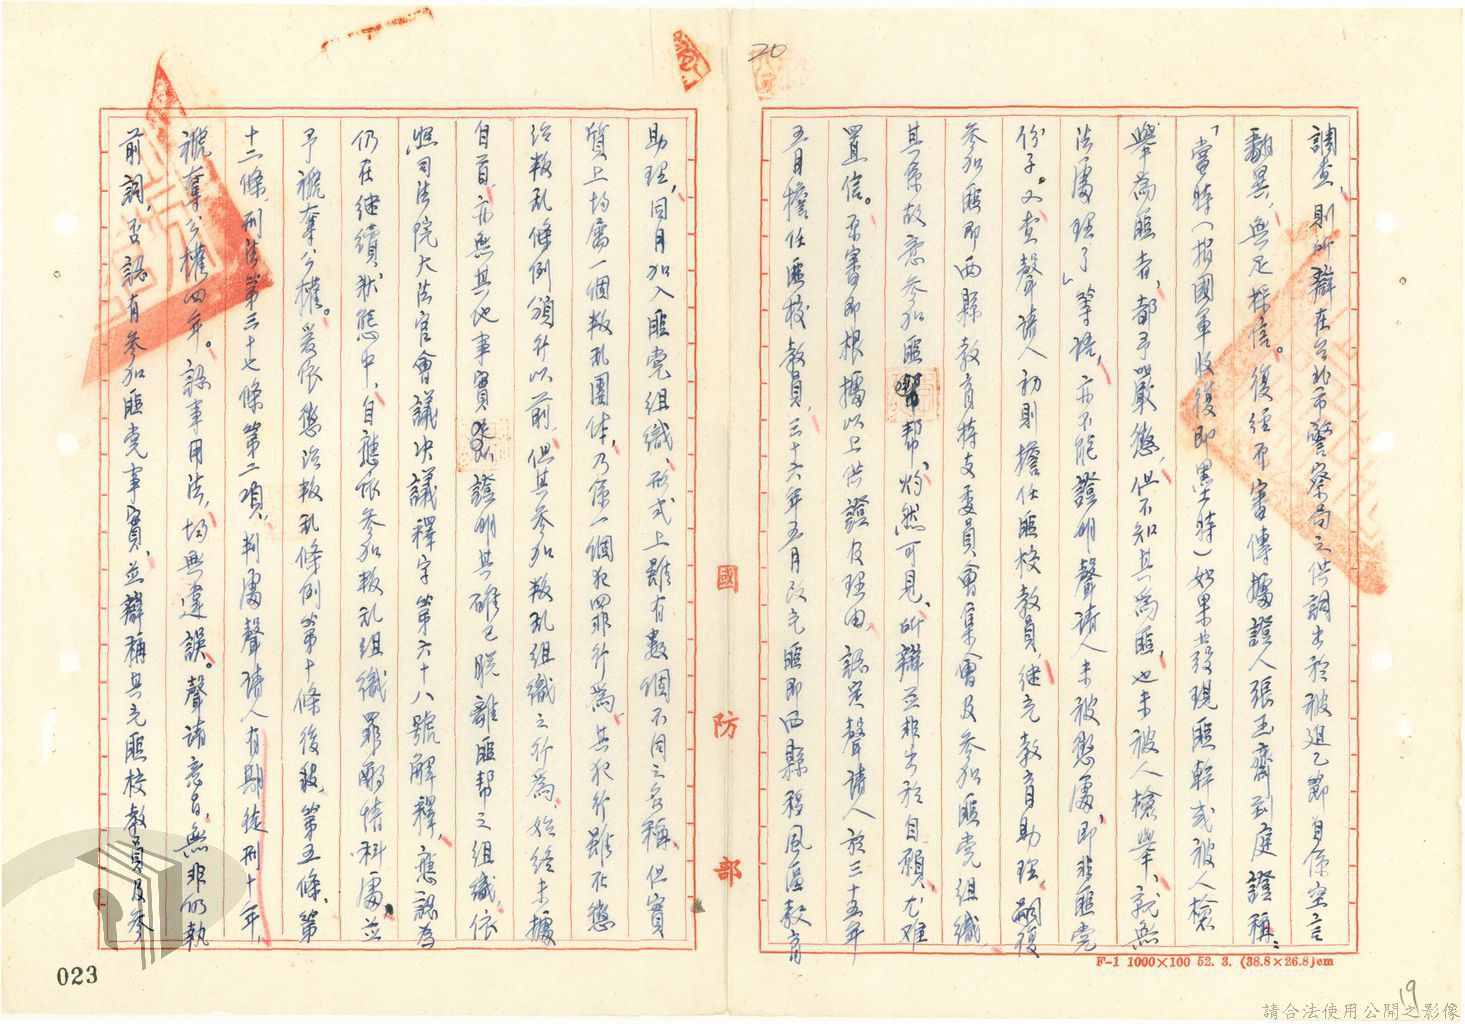 20
調查,則所辯在台北市警察局之供詞出於被迫乙節自係空言
翻異,無足採信。復經本審傳據證人張玉齋到庭證稱:
「當時(指國軍收復即墨時)如果發現匪幹或被人檢
舉為匪者,都予嚴懲,但不知其為匪,也未被人檢舉,就無
法處理了」等語,亦不能證明聲請人未被懲處,即非匪黨
份子。又查聲請人初則擔任匪校教員,繼充教育助理,嗣復
參加匪即西縣教育特支委員會集會及參加匪黨組織,
其係故意參加匪幫,灼然可見,所辯並非出於自願,尤難
置信。本審即根據以上供證及理由,認定聲請人於三十五年
五月擔任匪校教員,三十六年五月改充匪即西縣移風區教育
助理,同月加入匪黨組織,形式上雖有數個不同之名稱,但實
質上均屬一個叛亂團体,乃係一個犯罪行為,其犯行雖在懲
治叛亂條例頒行以前,但其參加叛亂組織之行為,始終未據
自首,亦無其他事實足以證明其確已脫離匪幫之組織,依
照司法院大法官會議決議釋字第六十八號解釋,應認為
仍在繼續狀態中,自應依參加叛亂組織罪酌情科處,並
予褫奪公權。爰依懲治叛亂條例第十條後段,第五條,第
十二條,刑法第三十七條第二項,判處聲請人有期徒刑十年,
褫奪公權四年。認事用法,均無違誤。聲請意旨,無非仍執
前詞,否認有參加匪黨事實,並辯稱其充匪校教員及參
國防部
F-1 1000×100 52. 3. (38.8×26.8)cm
023
19
請合法使用公開之影像